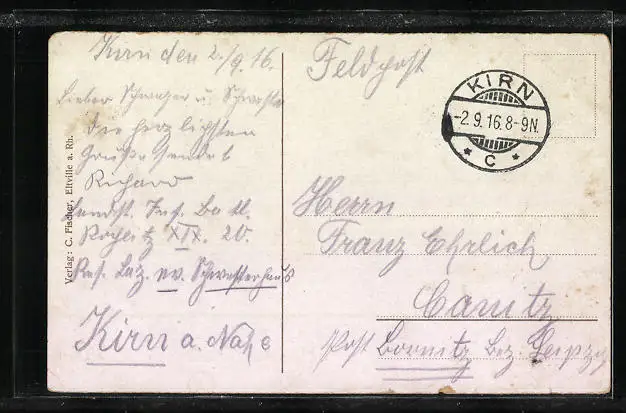 Kirn den 2./9. 16.
Lieber Schwager u. Schwester
die herzlichsten
Grüße sendet
Richard
Landst. Inf. Batl.
Rochlitz XIX. 20.
Res. Laz. ev. Schwesterhaus
Kirn a. Nahe
Verlag: C. Fischer, Eltville a. Rh.
Feldpost
KIRN
-2.9.16.8-9N.
* C *
Herrn
Franz Ehrlich
Canitz
Post Bornitz Bez. Leipzig